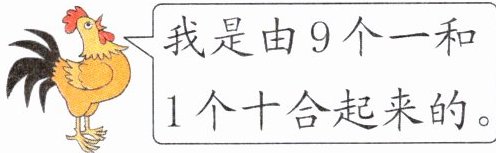 我是由9个一和
1个十合起来的。